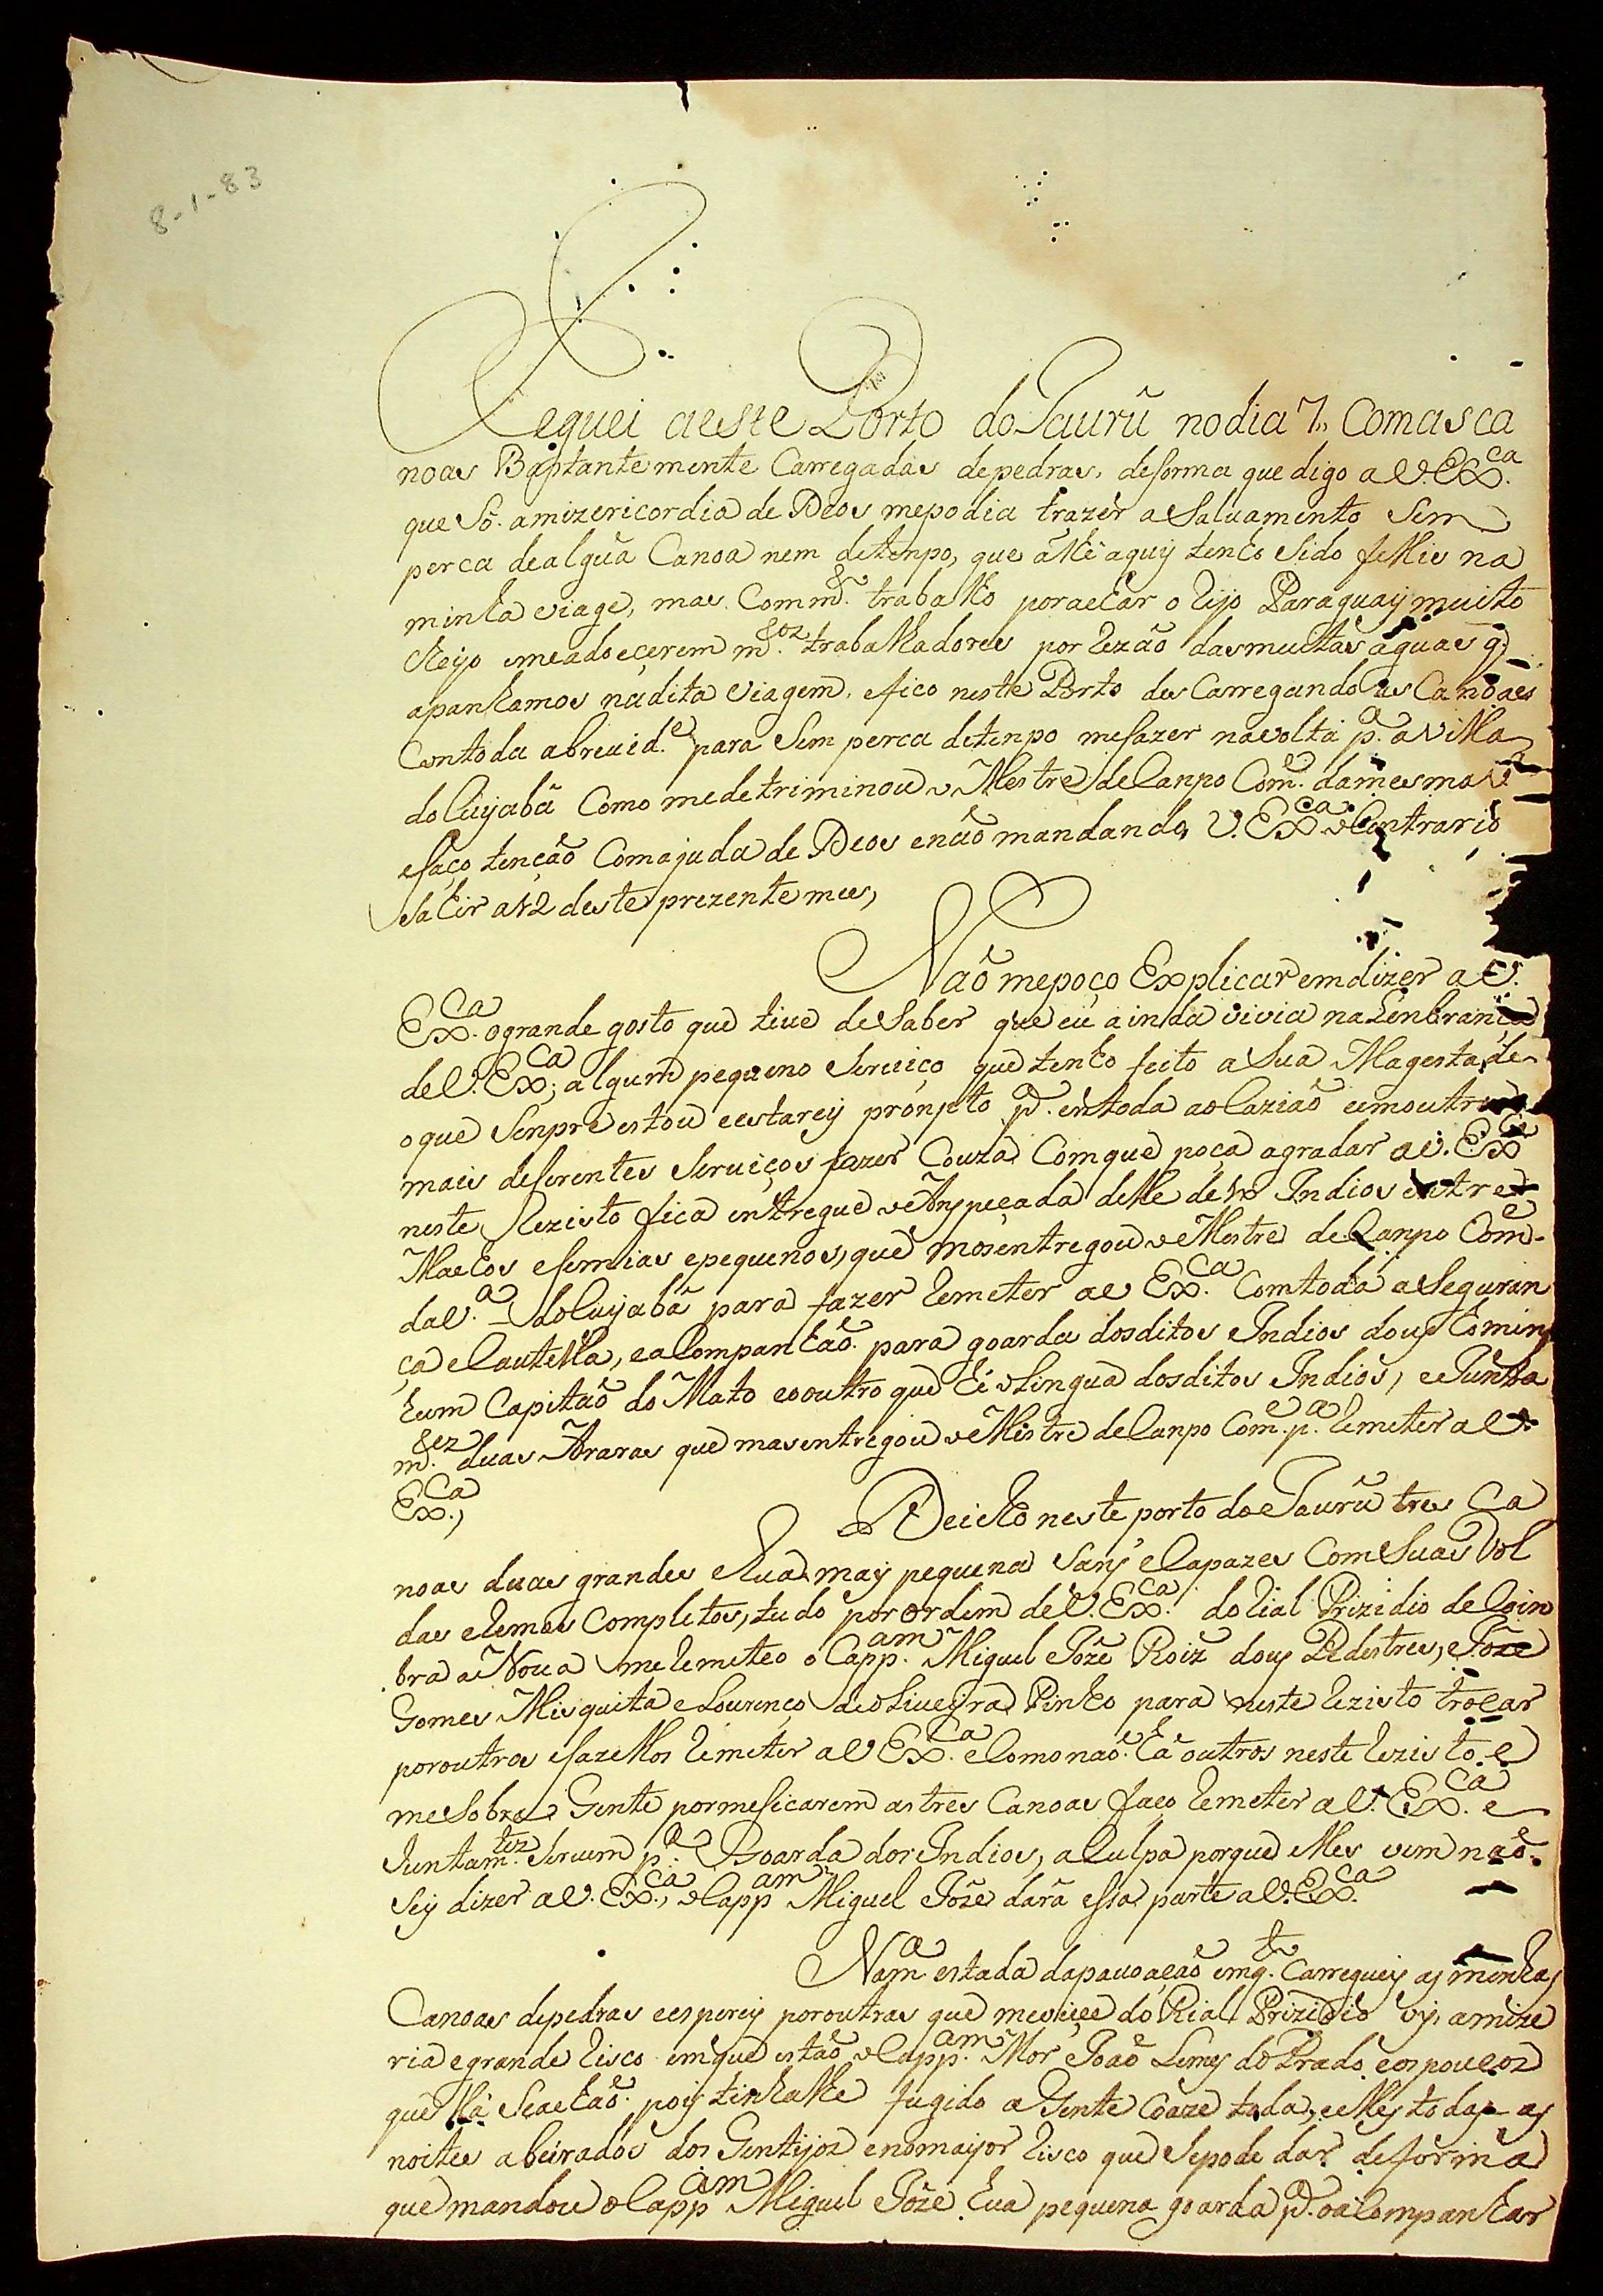 8-1-83
Xeguei aeste Porto do Jaurû no dia 7,, Comasca
noas Bastantemente Carregadas depedras, deforma que digo a V. Exca
que Só. amizericordia de Deos mepodia trazer a Saluamento Sem
perca dealguã Canoa nem detenpo, que athé aquy tenho Sido feliis na
minha viage, mas Com mto. trabalho poraxar o Rijo Paraguay muito
Xeyo emeadoeçerem mtos. trabalhadores por Rezão dasmuitas agoas q.
apanhamos nadita viagem, efico neste Porto desCarregando as Canoas
Contoda abreuide. para Sem perca detenpo mefazer navolta pa. a villa
doCuyabá Como medetriminou o Mestre deCanpo Come. damesma Va
efaço tenção Comajuda de Deos enão mandando V. Exca. oContrario
Sahir a12 deste prezente mes,
Não mepoço Explicar emdizer a V.
Exca. ogrande gosto que tiue deSaber que eu ainda vivia naLenbrança
deV. Exca; algum pequeno Seruiço que tenho feito a Sua Magestade
oque Senpre estou eestarey prónpto pa. entoda aoCazião eemoutros
mais deferentes Seruiços fazer Couza Comque poça agradar aV. Exca
neste Rezisto fica entregue oAnspeçada delle de 10 Indios entre
Maxos efemias epequenos, que mosentregou oMestre deCanpo Come.
daVa. doCuyabá para fazer Remeter aV Exca. Comtoda aSeguran
ça eCautella, eaCompanhão. para goarda dosditos Indios dous homins
hum Capitão do Mato eooutro que hé oLingua dosditos Indios, eJunta
mtez. duas Araras que masentregou oMestre deCanpo Come. pa. Remeter aV.
Exca.,
Deicho neste porto doJaurû tres Ca
noas duas grandes ehua. may pequena Sans eCapazes ComSuas Vol
das eRemos Completos, tudo porordem deV. Exca. do Rial Prizidio deCoin
bra a Noua meRemeteo o Cappam. Miguel Jozé Roiz dous Pedestres, eJoze
Gomes Misquita eLourenço deoLiueyra Pinho para neste Rezisto trocar
poroutros efazellos Remeter aV Exca. eComo não. há outros neste Rezisto. e
meSobra Gente pormeficarem as tres Canoas faço Remeter aV. Exca. e
Juntamtez. Seruem pa. Goarda dos Indios, aCulpa porque elles vem não.
Sey dizer aV. Exca., oCappam Miguel Jozé dará essa parte aV. Exca.
Nam.a estada dapauoação emqto. Carreguey as minhas
Canoas depedras eesperey poroutras que mevieçe do Rial Prizidio vy, amize
ria egrande Risco emque estão oCappam. Mor João Lemes do Prado, eos poucos
que llá Seachão. pois tinhalhe fugido a Gente Coaze toda, eelles todas as
noites abeirados dos Gentijos enomaijor Risco que Sepode dar deforma
que mandou oCappam Miguel Jozé hua pequena goarda pa. oaCompanhar